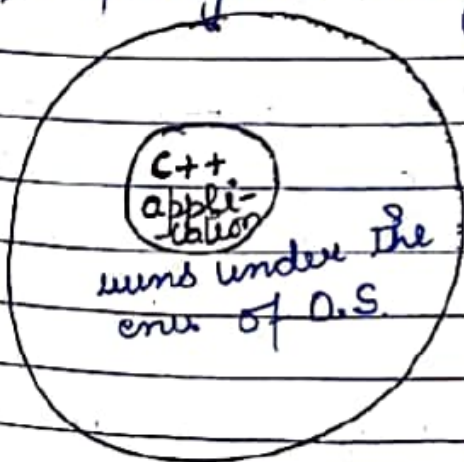 C++
appli-
-cation
runs under the
env. of O.S.